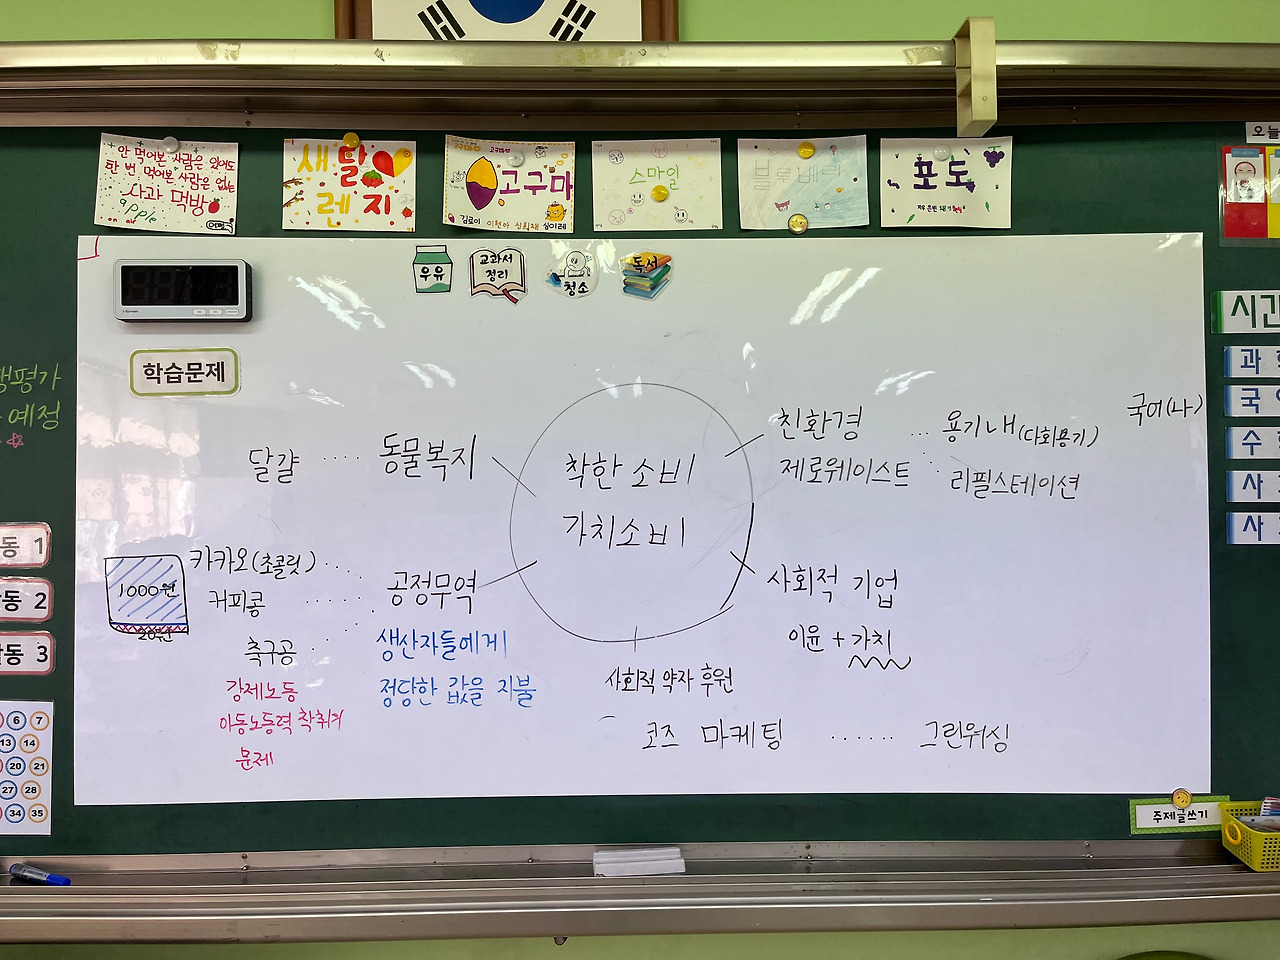 안 먹어본 사람은 있어도
한 번 먹어본 사람은 없는
사과 먹방
apple
새탈
렌지
고구마
김로이
스마일
블루베리
포도
오늘
우유
교과서
정리
청소
독서
학습문제
시간
과
국어
수
사
사
행평가
예정
국어(나)
달걀 ····· 동물복지
착한 소비
가치소비
친환경 ··· 용기내(다회용기)
제로웨이스트
리필스테이션
카카오(초콜릿) ·····
커피콩 ······
축구공 ·
공정무역
생산자들에게
정당한 값을 지불
1000원
20원
강제노동
아동노동력 착취
문제
사회적 기업
이윤 + 가치
사회적 약자 후원
코즈 마케팅 ······ 그린워싱
동 1
동 2
동 3
6 7
13 14
20 21
27 28
34 35
주제글쓰기